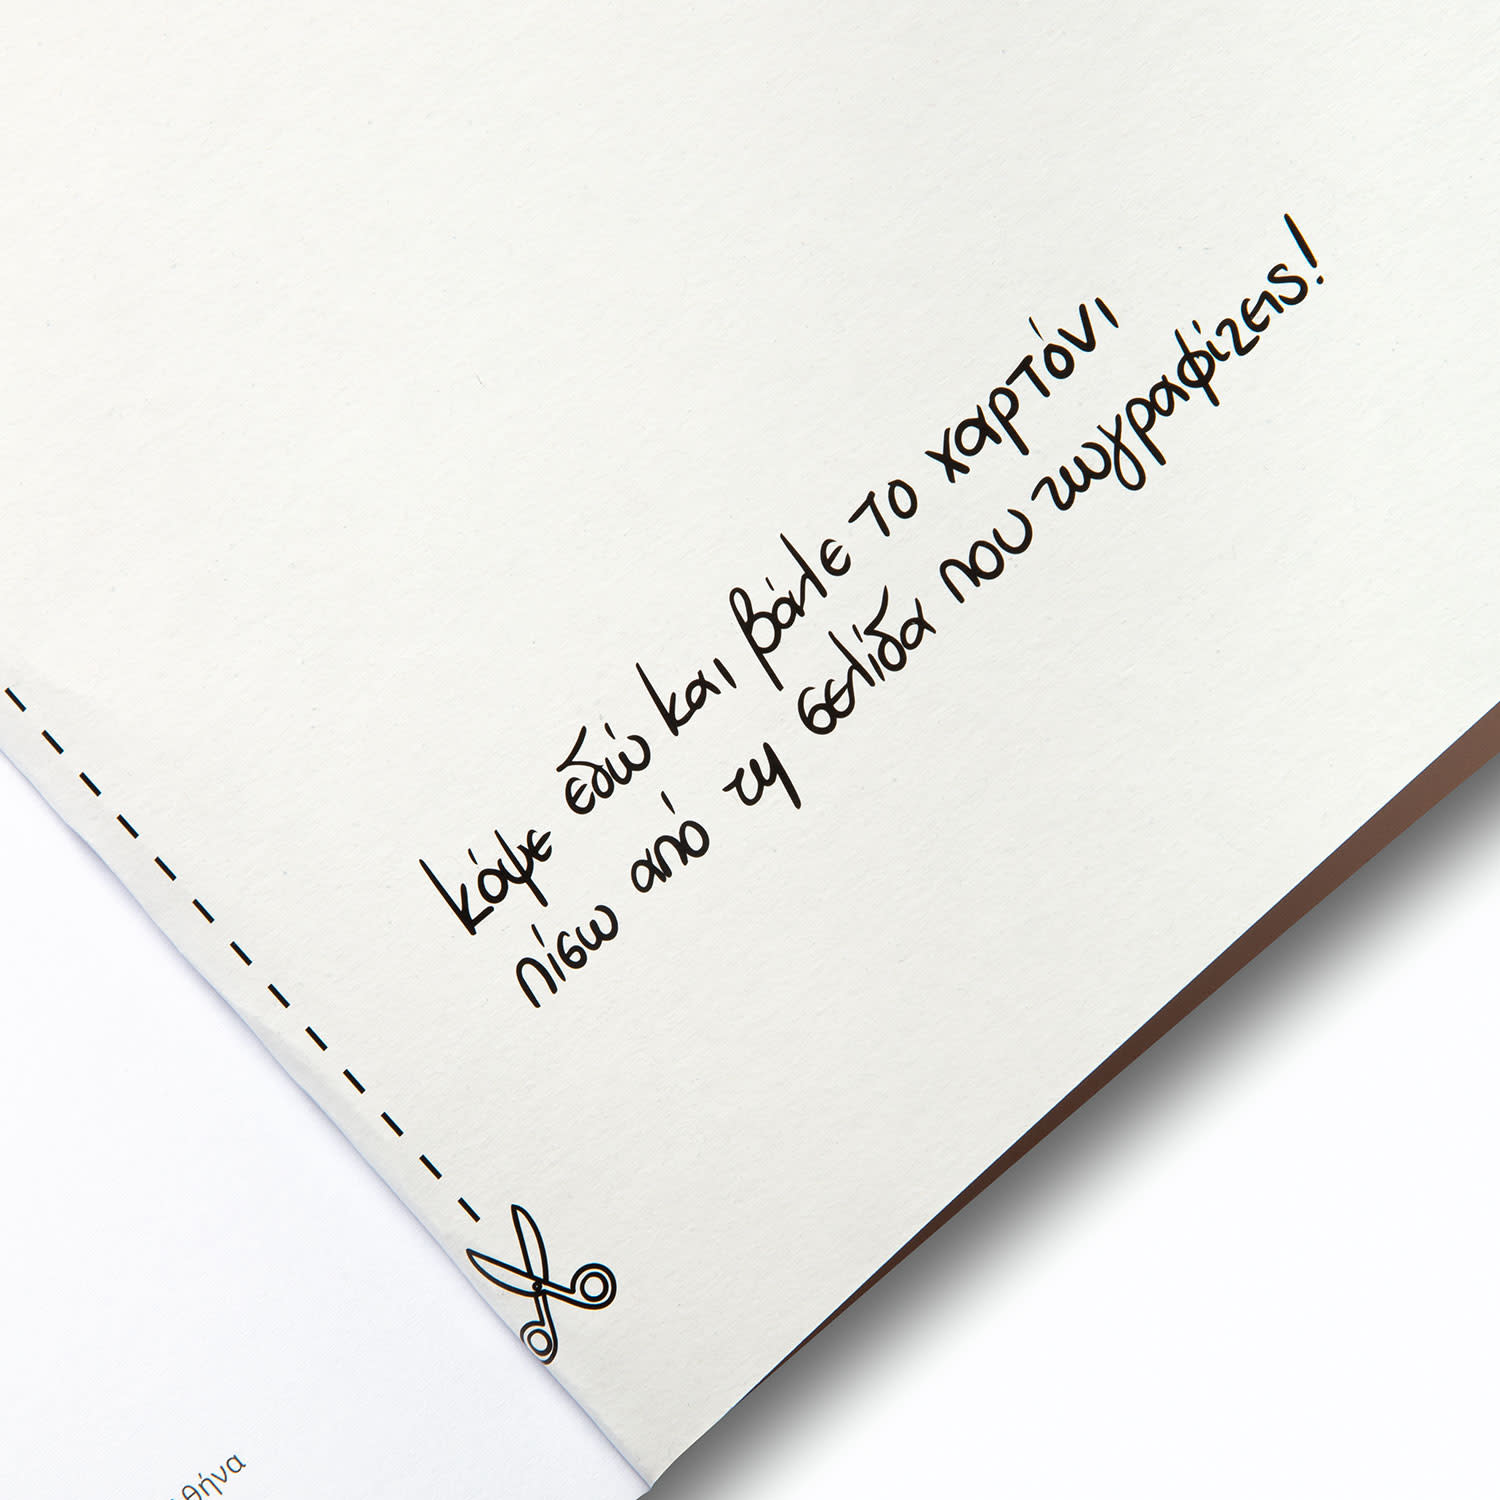 κόψε εδώ και βάλε το χαρτόνι
πίσω από τη σελίδα που ζωγραφίζεις!